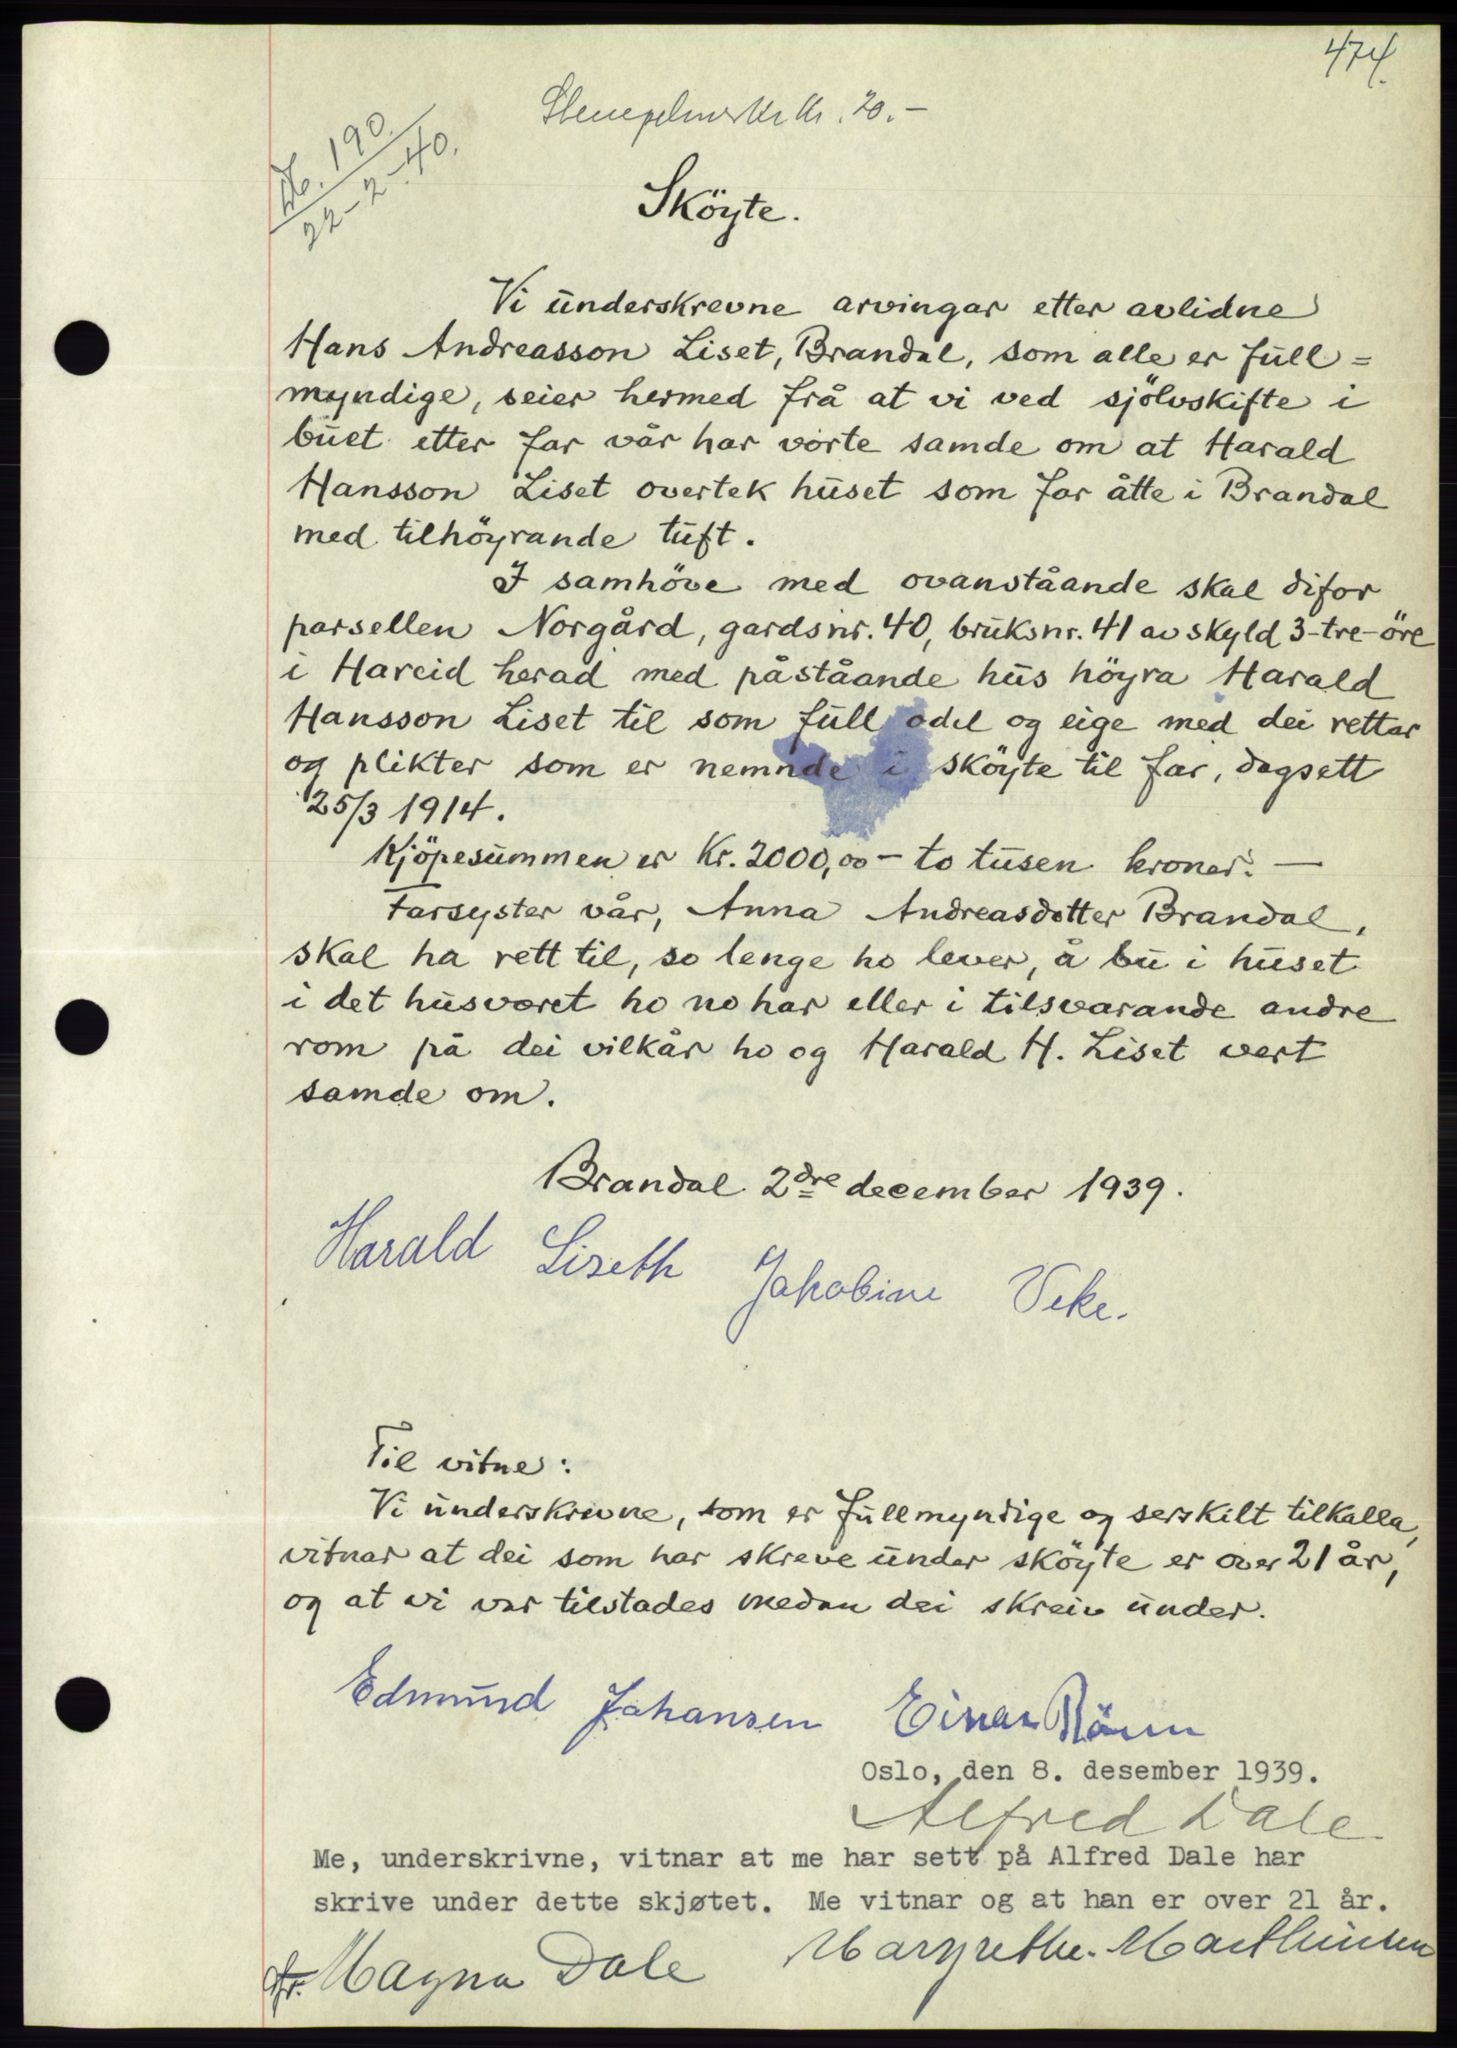 474.
Stempelmerke kr. 20.-
No. 190.
22-2-40.
Sköyte.
Vi underskrevne arvingar etter avlidne
Hans Andreasson Liset, Brandal, som alle er full=
myndige, seier hermed frå at vi ved sjölvskifte i
buet etter far vår har vorte samde om at Harald
Hansson Liset overtek huset som far åtte i Brandal
med tilhöyrande tuft.
I samhöve med ovanståande skal difor
parsellen Norgård, gardsnr. 40, bruksnr. 41 av skyld 3-tre-öre
i Hareid herad med påståande hus höyra Harald
Hansson Liset til som full odel og eige med dei rettar
og plikter som er nemnde i sköyte til far, dagsett
25/3 1914.
Kjöpesummen er Kr. 2000,00 - to tusen kroner. —
Farsyster vår, Anna Andreasdotter Brandal,
skal ha rett til, so lenge ho lever, å bu i huset
i det husværet ho no har eller i tilsvarande andre
rom på dei vilkår ho og Harald H. Liset vert
samde om.
Brandal 2dre december 1939.
Harald Liseth Jakobine Veke.
Til vitne:
Vi underskrevne, som er fullmyndige og serskilt tilkalla,
vitnar at dei som har skreve under sköyte er over 21 år,
og at vi var tilstades medan dei skreiv under.
Edmund Johansen Einar Rönn
Oslo, den 8. desember 1939.
Alfred Dale
Me, underskrivne, vitnar at me har sett på Alfred Dale har
skrive under dette skjøtet. Me vitnar og at han er over 21 år.
fr. Magna Dale Margrethe Marthinsen